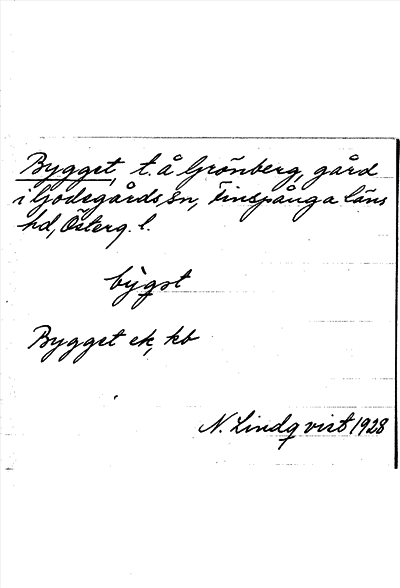 Bygget, t. å Grönberg, gård
i Godegårds sn, Finspånga läns
hd, Österg. l.
by̍gǝt
Bygget ek, kb
N. Lindqvist 1928